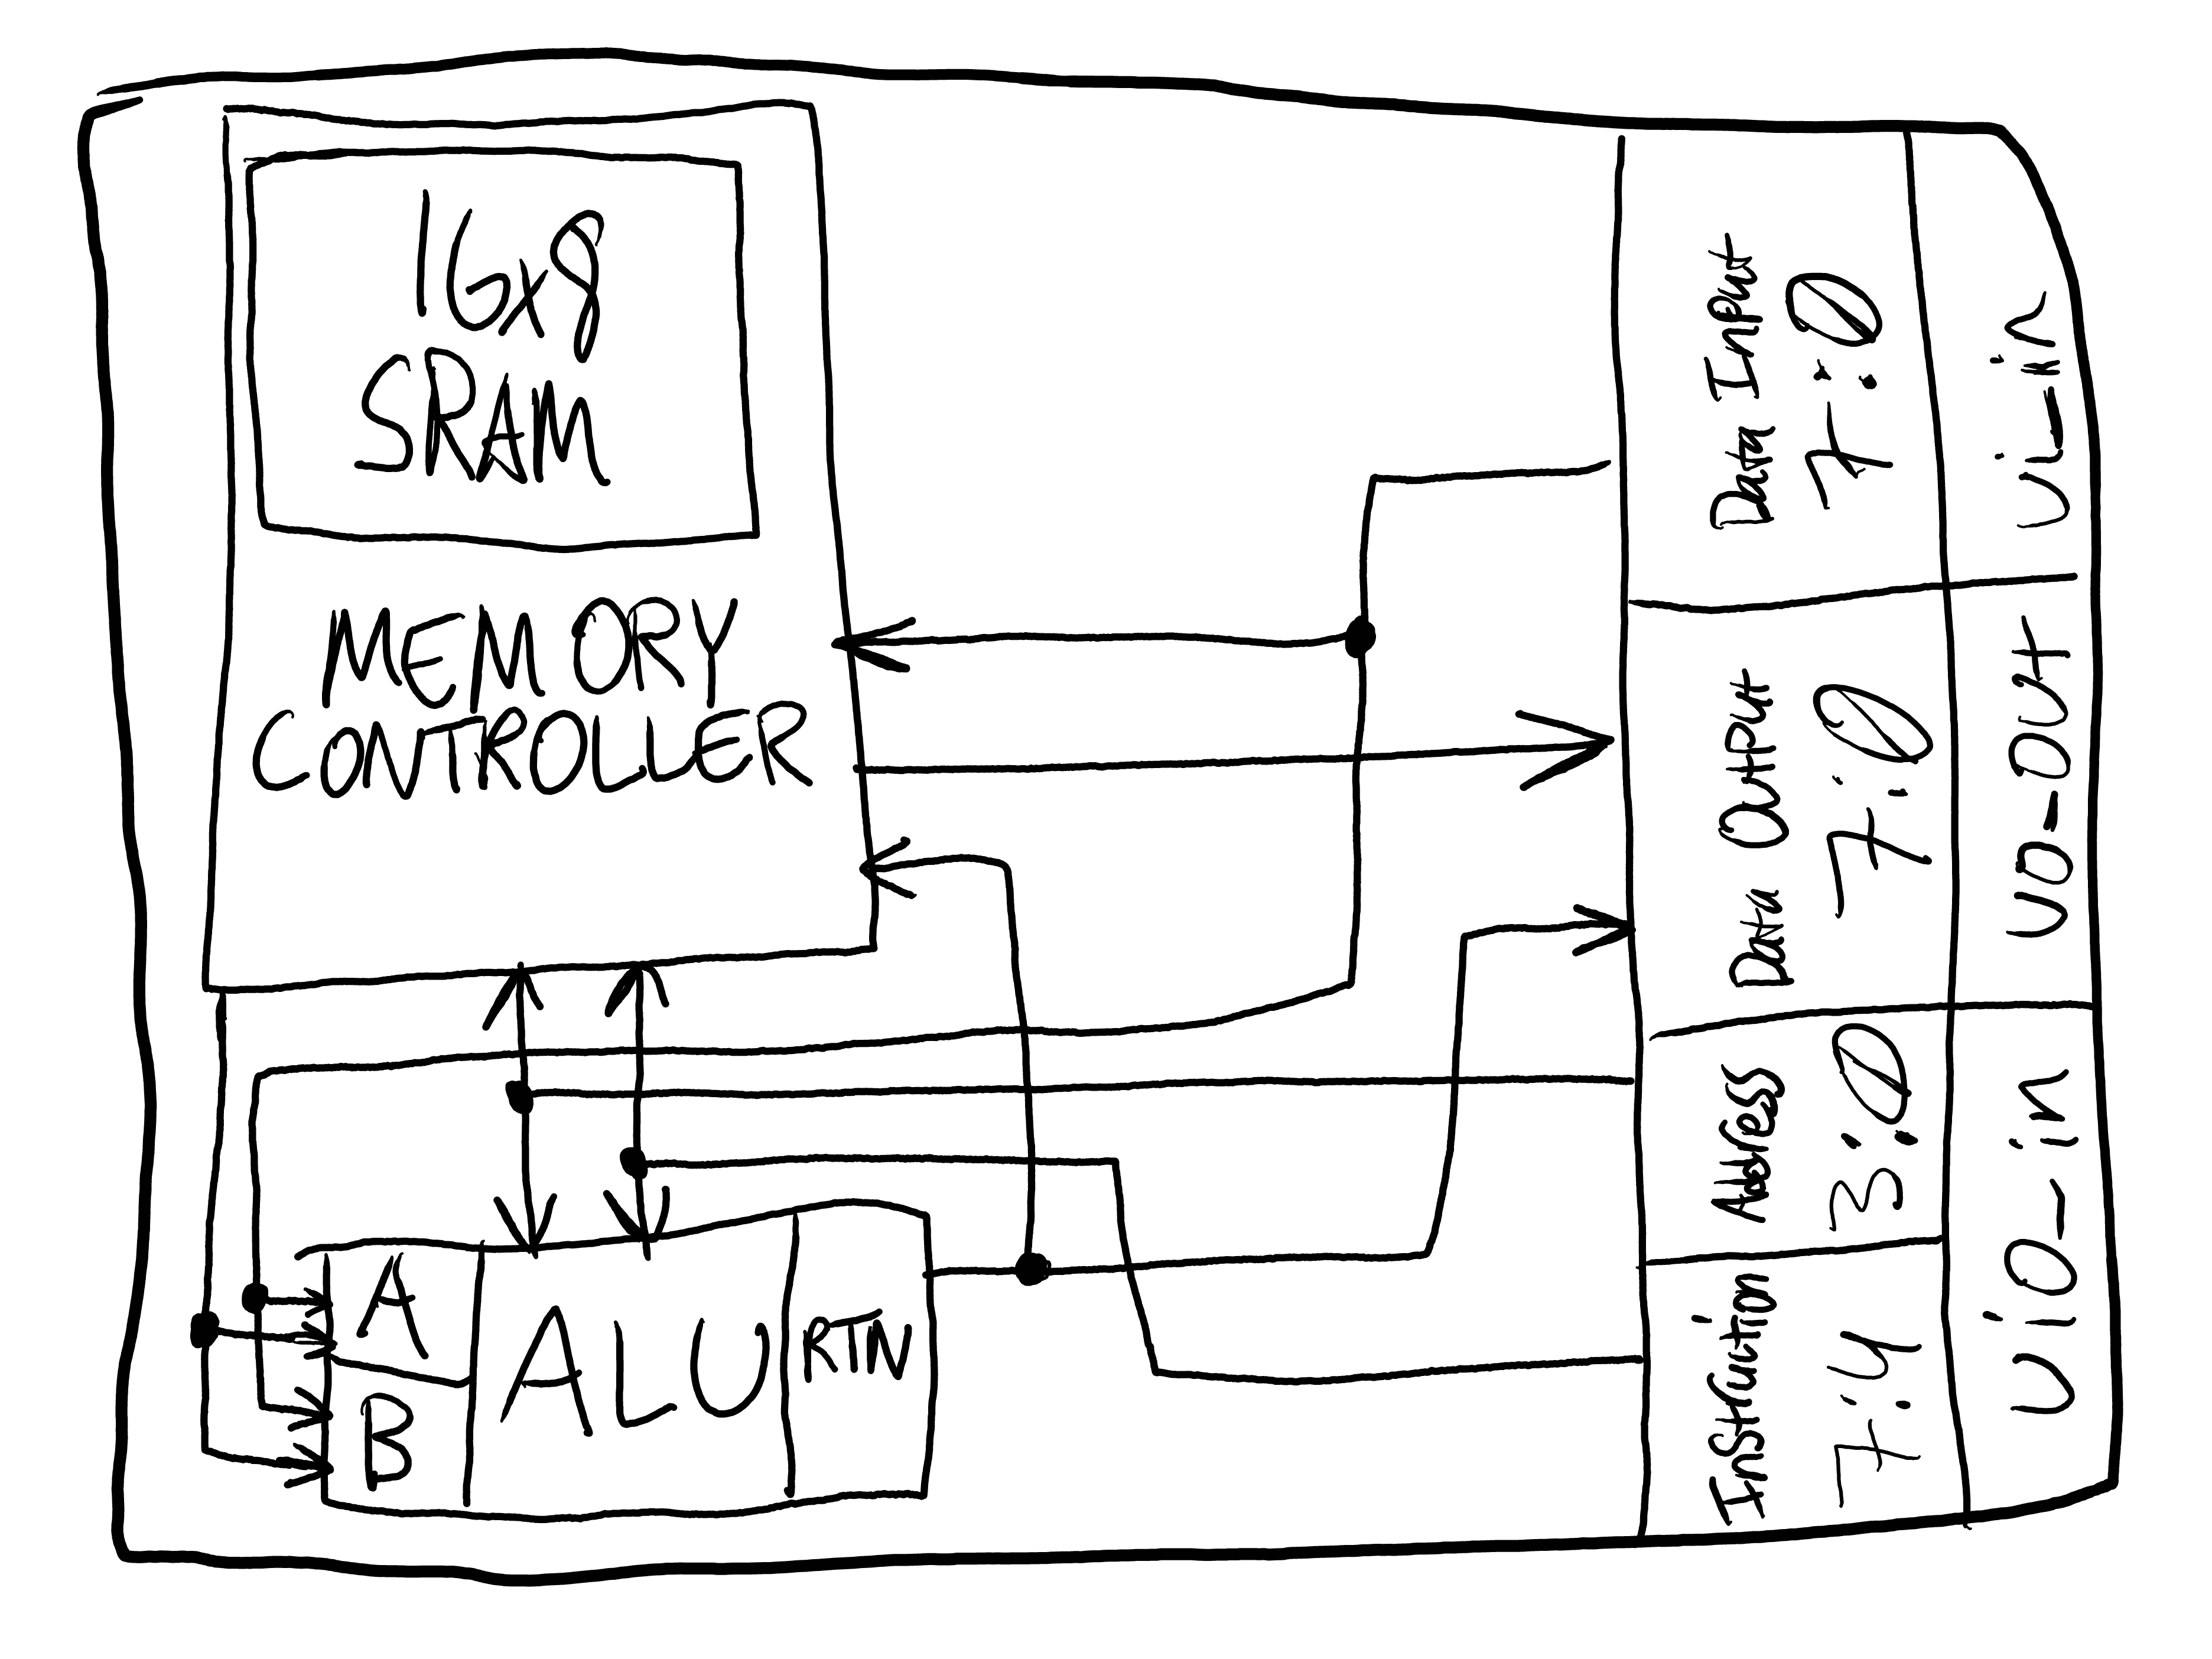 16x8
SRAM
MEMORY
CONTROLLER
A
B
ALU
RTN
Data Input
7:0
ui_in
Data Output
7:0
uo_out
Address
3:0
Instruction
7:4
uio_in